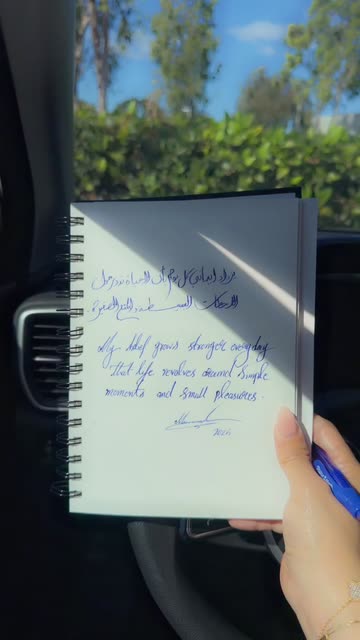 يزداد إيماني كل يوم أن الحياة تدور حول
اللحظات البسيطة و المتع الصغيرة.
My belief grows stronger everyday
that life revolves around simple
moments and small pleasures.